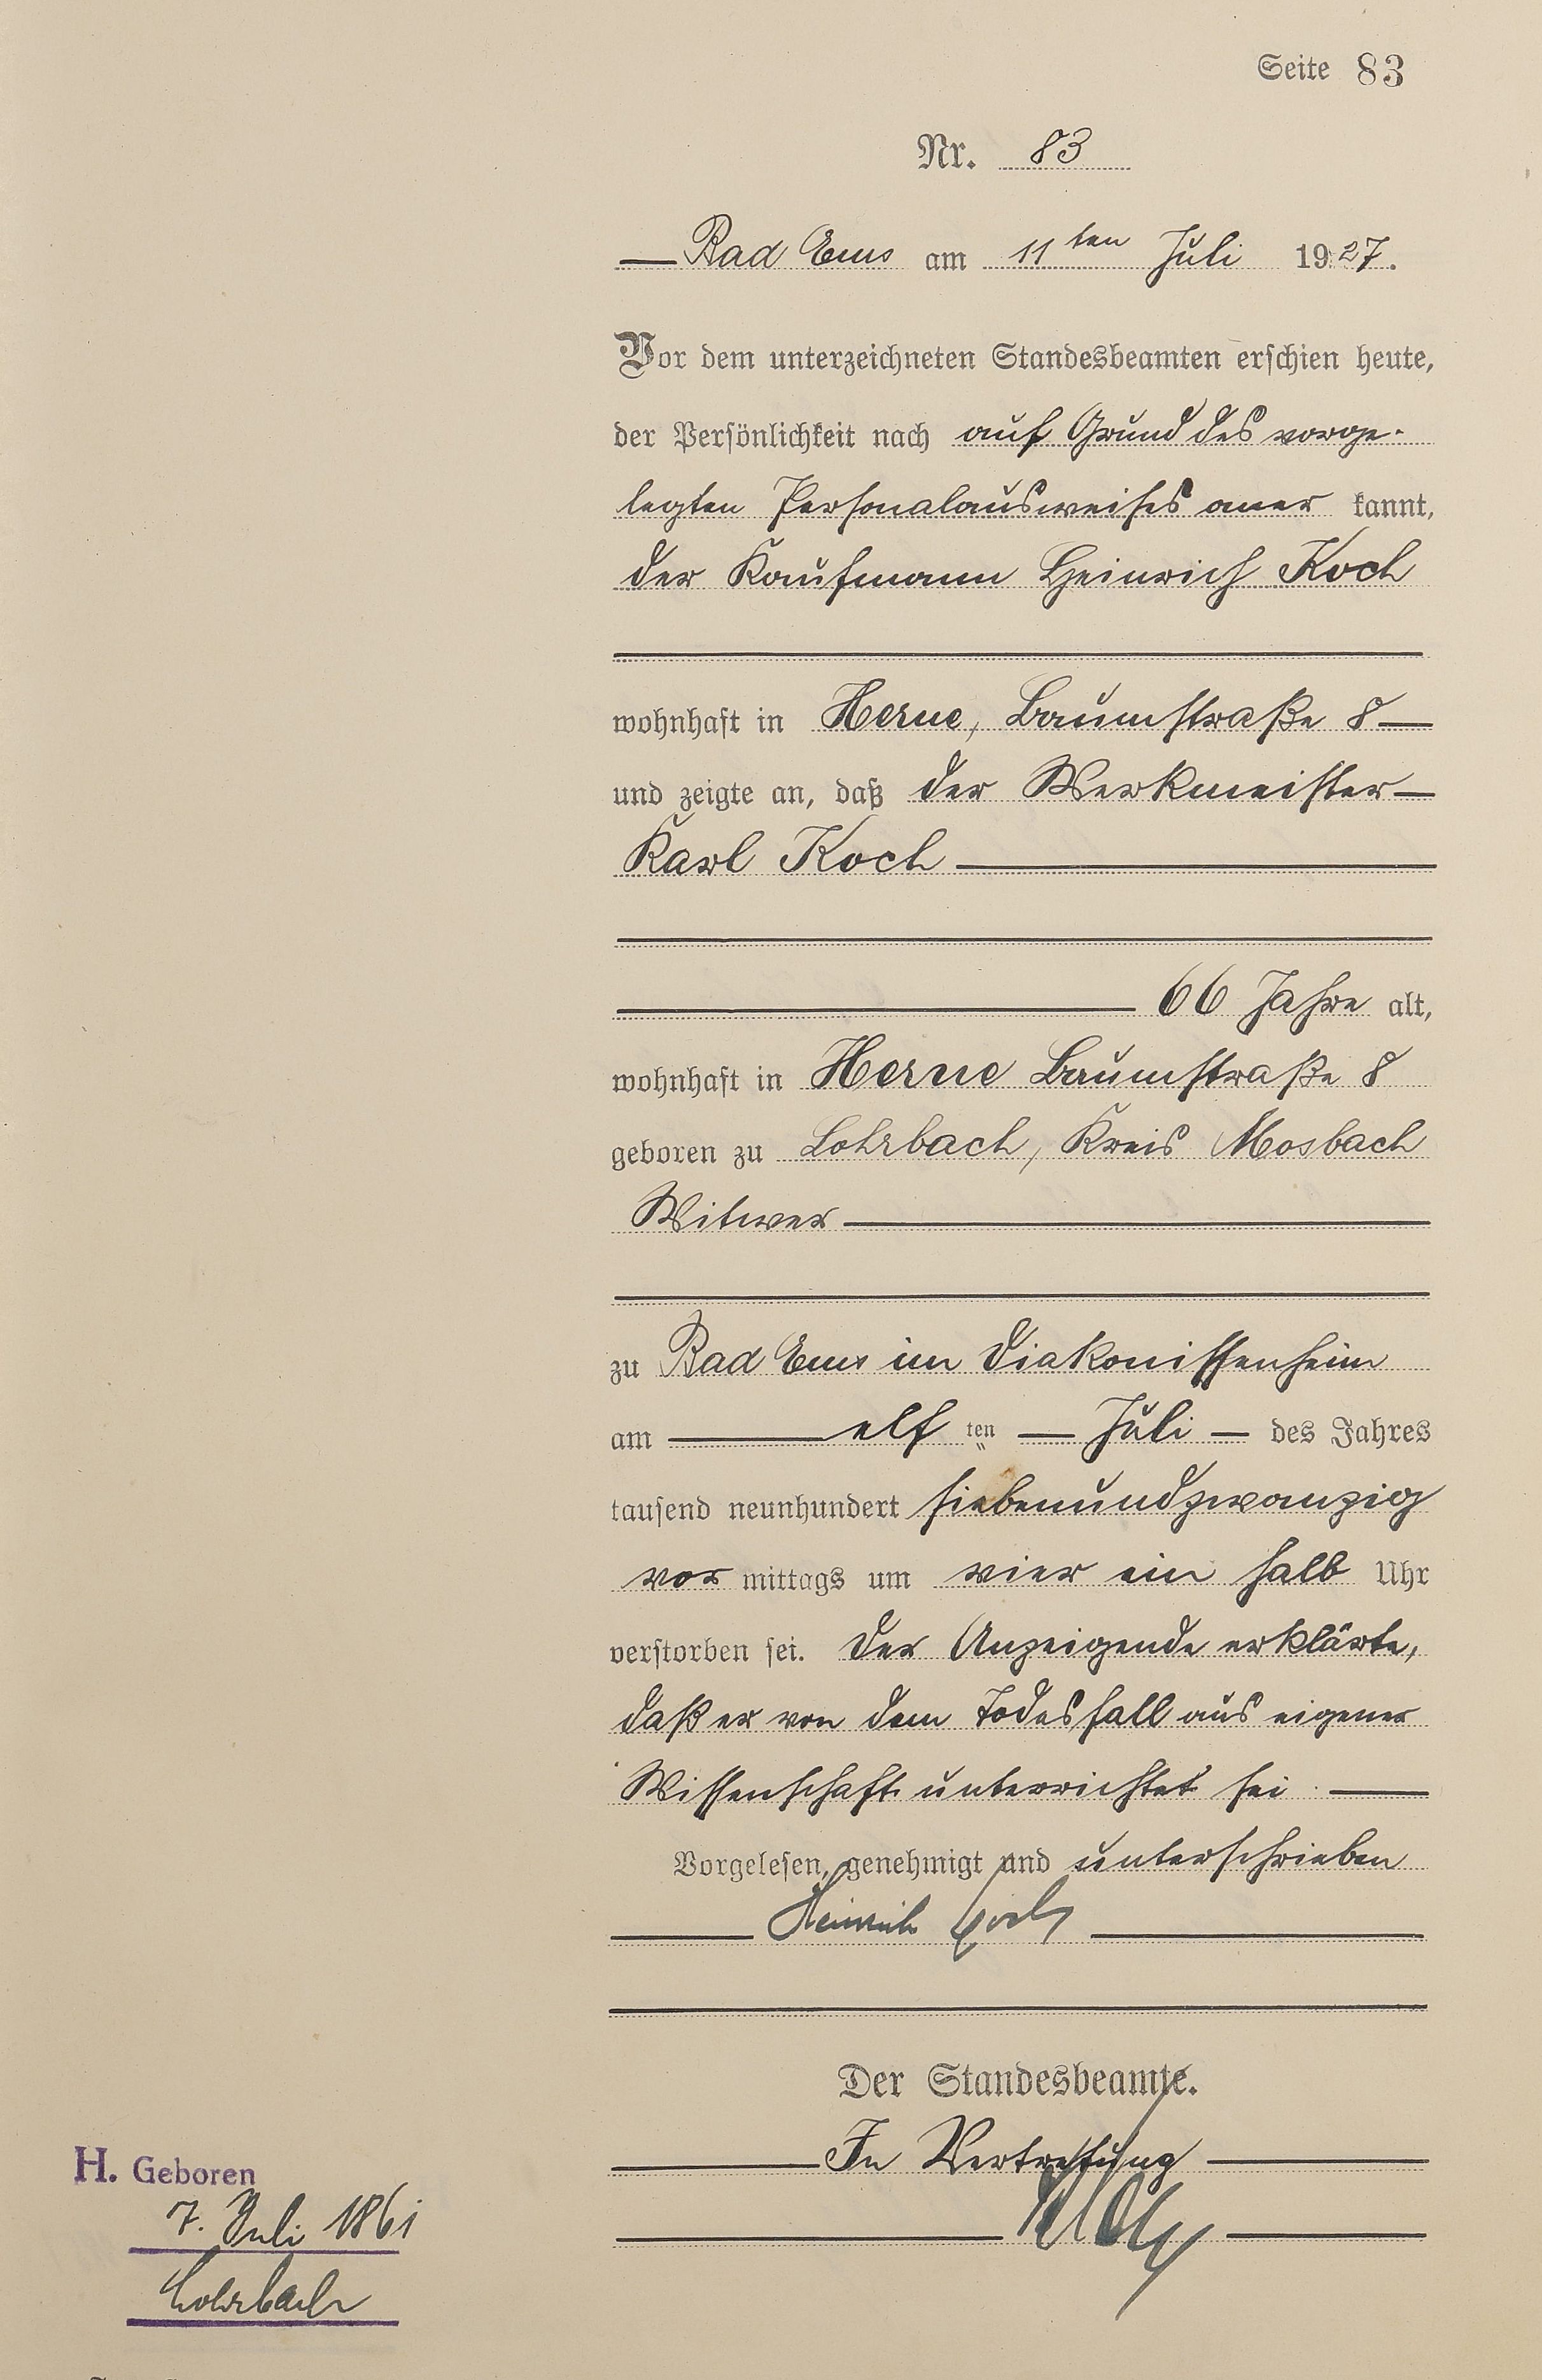 Seite 83
Nr. 83
Bad Ems am 11ten Juli 1927.
Vor dem unterzeichneten Standesbeamten erschien heute,
der Persönlichkeit nach auf Grund des vorge-
legten Personalausweises aner kannt,
der Kaufmann Heinrich Koch
wohnhaft in Herne, Baumstraße 8
und zeigte an, daß der Werkmeister
Karl Koch
66 Jahre alt,
wohnhaft in Herne Baumstraße 8
geboren zu Lohrbach, Kreis Mosbach
Witwer
zu Bad Ems im Diakonissenheim
am elf ten Juli des Jahres
tausend neunhundert siebenundzwanzig
vor mittags um vier ein halb Uhr
verstorben sei. Der Anzeigende erklärte,
daß er von dem Todesfall aus eigener
Wissenschaft unterrichtet sei
Vorgelesen, genehmigt und unterschrieben
Heinrich Koch
Der Standesbeamte.
In Vertretung
H. Geboren
7. Juli 1861
Lohrbach